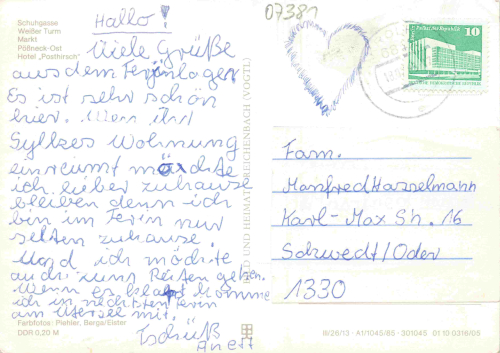 Schuhgasse
Weißer Turm
Markt
Pößneck-Ost
Hotel „Posthirsch"
Hallo!
Viele Grüße
aus dem Ferienlager
Es ist sehr schön
hier. Wenn ihr
Sylkes Wohnung
einreumt möchte
ich lieber zuhause
bleiben denn ich
bin im Ferin nur
selten zuhause.
Und ich möchte
auch zum Reiten gehen.
Wenn es klapt komme
ich in nechsten Ferin
am Utersee mit.
Tschüß
Anett
Farbfotos: Piehler, Berga/Elster
DDR 0,20 M
BILD UND HEIMAT REICHENBACH (VOGTL)
07381
10
Fam.
Manfred Hasselmann
Karl-Max Sh. 16
Schwedt/Oder
1330
III/26/13 · A1/1045/85 · 301045 01 10 0316/05